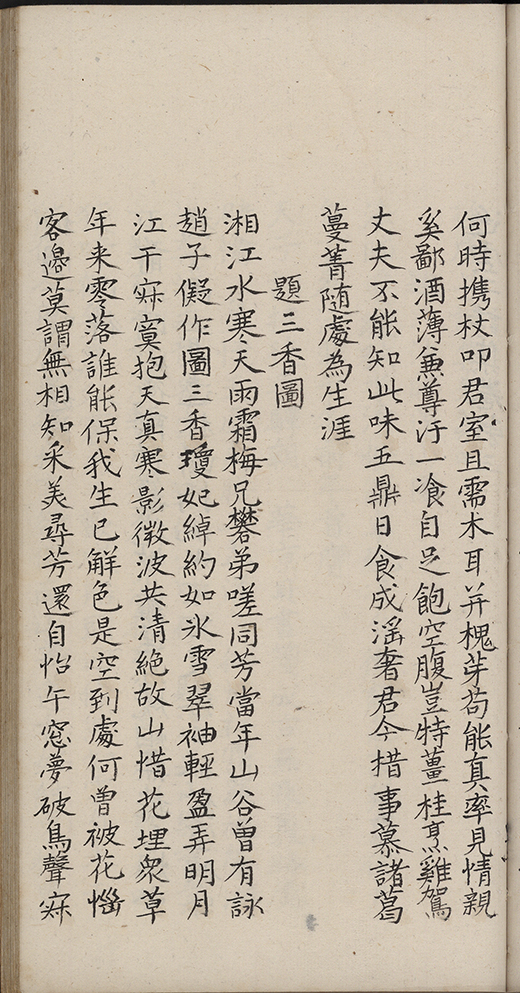 何時攜杖叩君室且需木耳并槐芽苟能真率見情親
奚鄙酒薄兼尊汙一飡自足飽空腹豈特薑桂烹雞鴐
丈夫不能知此味五鼎日食成滛奢君今措事慕諸葛
蔓菁随處為生涯
題三香圖
湘江水寒天雨霜梅兄礬弟嗟同芳當年山谷曽有詠
趙子儗作圖三香瓊妃綽約如氷雪翠袖輕盈弄明月
江干寂寞抱天真寒影微波共清絕故山惜花埋衆草
年来零落誰能保我生已解色是空到處何曽被花惱
客邉莫謂無相知采美尋芳還自怡午窓夢破鳥聲寂